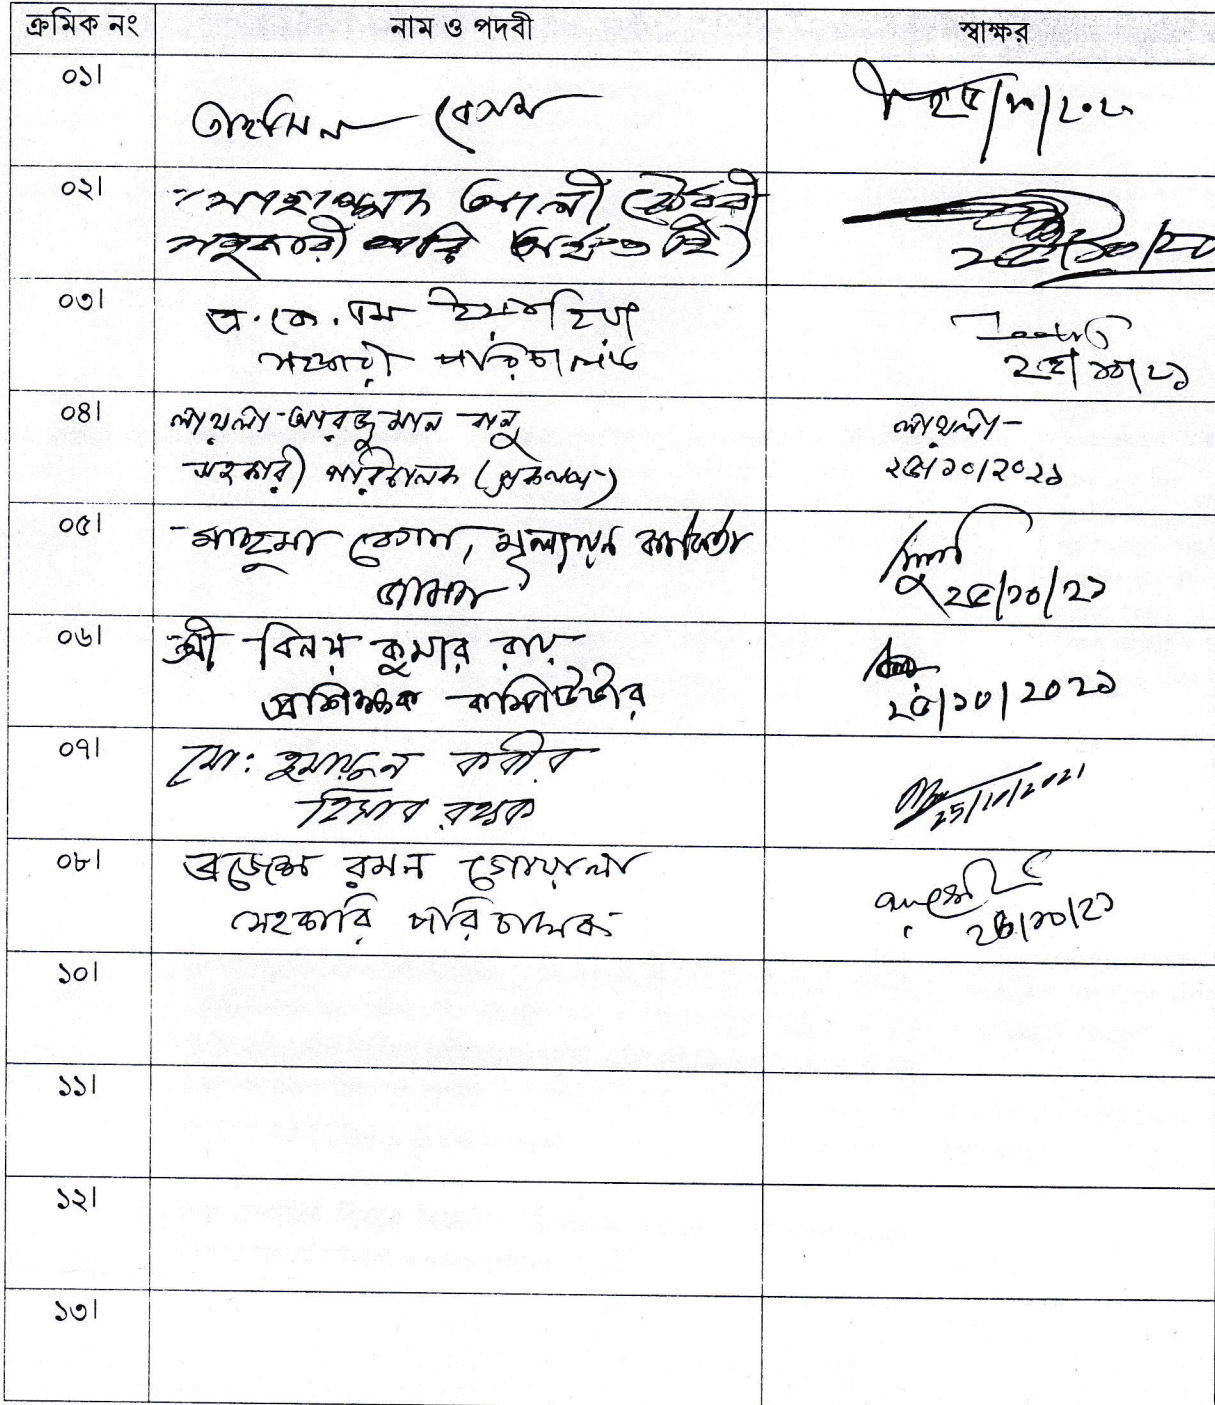 ক্রমিক নং নাম ও পদবী স্বাক্ষর
০১।
তাহমিন বেগম /২০২
০২। আলী চৌধুরী
সহকারী পরি
০৩। এ.কে.এম ইয়াহিয়া
সহকারী পরিচালক ২৫/১০/২১
০৪। লায়লা আরজুমান বানু লায়লা
সহকারী পরিচালক (প্রকাশনা) ২৫/১০/২০২১
০৫। মাছুমা বেগম, মূল্যায়ন কর্মকর্তা
২৫/১০/২১
০৬। শ্রী বিনয় কুমার রায়
প্রশিক্ষক কম্পিউটার ২৫/১০/২০২১
০৭। মো: হুমায়ুন কবীর
হিসাব রক্ষক 25/10/2021
০৮। ব্রজেন্দ্র রমন গোয়ালা
সহকারি পরিচালক ২৫/১০/২১
১০।
১১।
১২।
১৩।